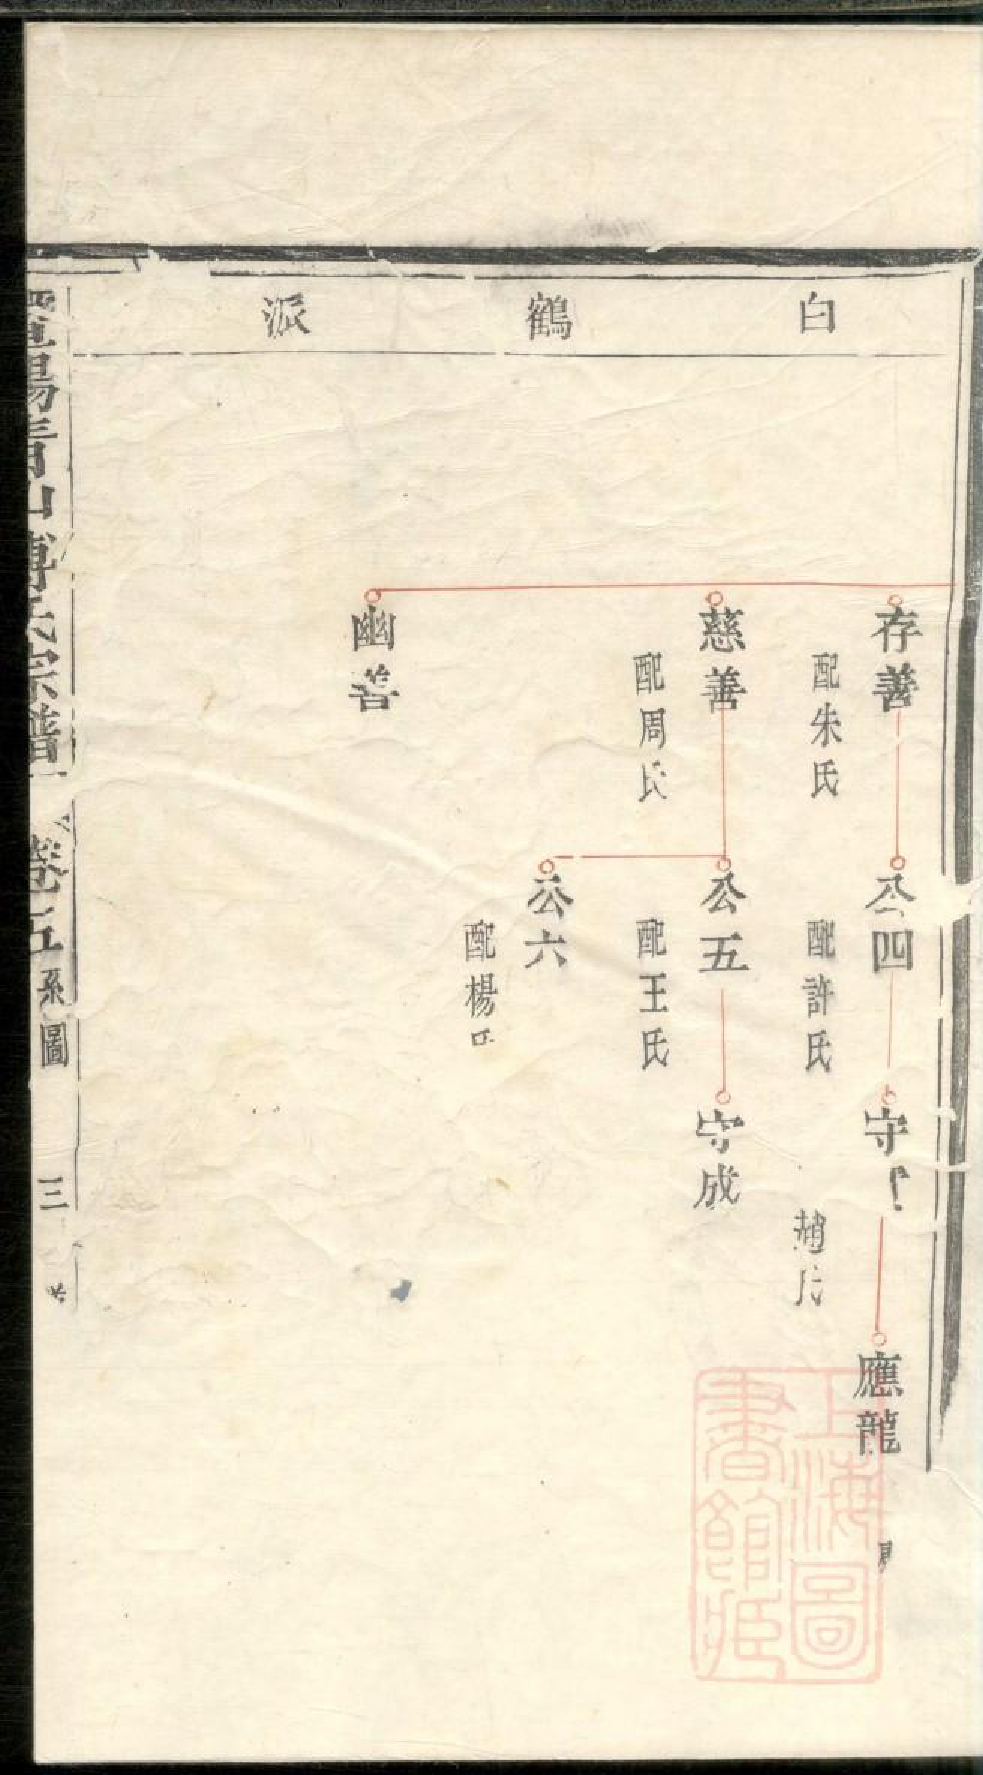 白鶴派
存善
配朱氏
公四
配許氏
守
趙氏
應龍
慈善
配周氏
公五
配王氏
守成
公六
配楊氏
幽善
暨陽青山傅氏宗譜
卷五
系圖
三
上海圖
書館藏